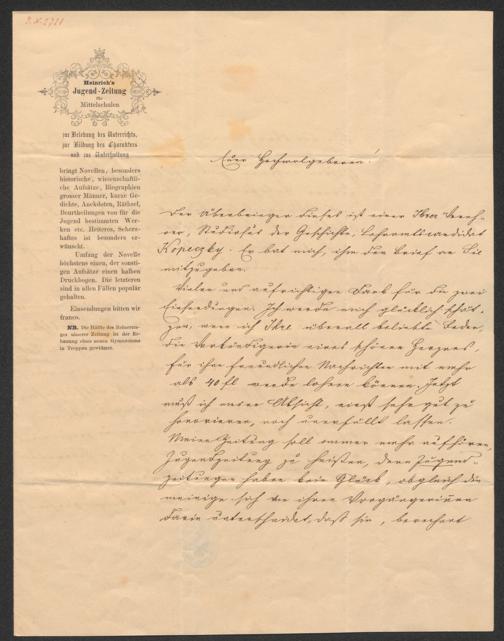 Heinrich's
Jugend-Zeitung
für
Mittelschulen
zur Belebung des Unterrichts,
zur Bildung des Charakters
und zur Unterhaltung
bringt Novellen, besonders
historische, wissenschaftli-
che Aufsätze, Biographien
grosser Männer, kurze Ge-
dichte, Anekdoten, Räthsel,
Beurtheilungen von für die
Jugend bestimmten Wer-
ken etc. Heiteres, Scherz-
haftes ist besonders er-
wünscht.
Umfang der Novelle
höchstens einen, der sonsti-
gen Aufsätze einen halben
Druckbogen. Die letzteren
sind in allen Fällen populär
gehalten.
Einsendungen bitten wir
franco.
NB. Die Hälfte des Reinerträg-
nisses unserer Zeitung ist der Er-
bauung eines neuen Gymnasiums
in Troppau gewidmet.
Euer Hochwolgeboren!
Der Überbringer dieses ist einer Ihrer Vereh-
rer, Studiosus der Geschichte, Lehramtscandidat
Kopeczky. Er bat mich, ihm den Brief an Sie
mitzugeben.
Vielen und aufrichtigen Dank für die zwei
Einsendungen. Ich werde mich glücklich schät-
zen, wenn ich Ihre überall beliebte Feder,
die Verkündigerin eines schönen Herzens
für ihre freundlichen Nachrichten mit mehr
als 40 fl werde lohnen können. Jetzt
muß ich meine Absicht, einst sehr gut zu
honorieren, noch unerfüllt lassen.
Meine Zeitung soll immer mehr aufhören,
Jugendzeitung zu heißen, denn Jugend-
zeitungen haben kein Glück, obgleich die
meinige sich von ihren Vorgängerinnen
darin unterscheidet, daß sie, berechnet